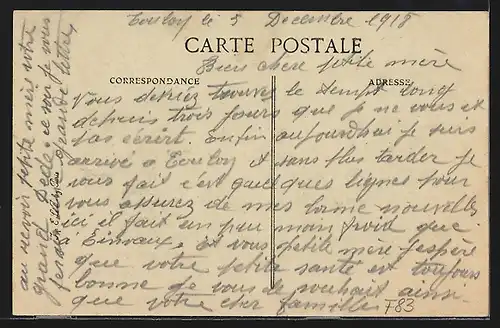 Toulon le 5 Decembre 1918
CARTE POSTALE
Bien chere petite mère
CORRESPONDANCE
ADRESSE
Vous devriez trouver le temps long
depuis trois jours que je ne vous et
pas écrirt. enfin aujourdhai je suis
arrivé a Toulon et sans plus tarder je
vous fait c'est quelques lignes pour
vous assurez de mes bonne nouvelles
ici il fait un peu moin froid que
Et vous petite mère j'espère
que votre petite santé est toujours
bonne je vous le souhait ainsi
que votre cher familles
F83
au revoir petite mère votre
grand Dédé. ce soir je vous
ferai grande lettre